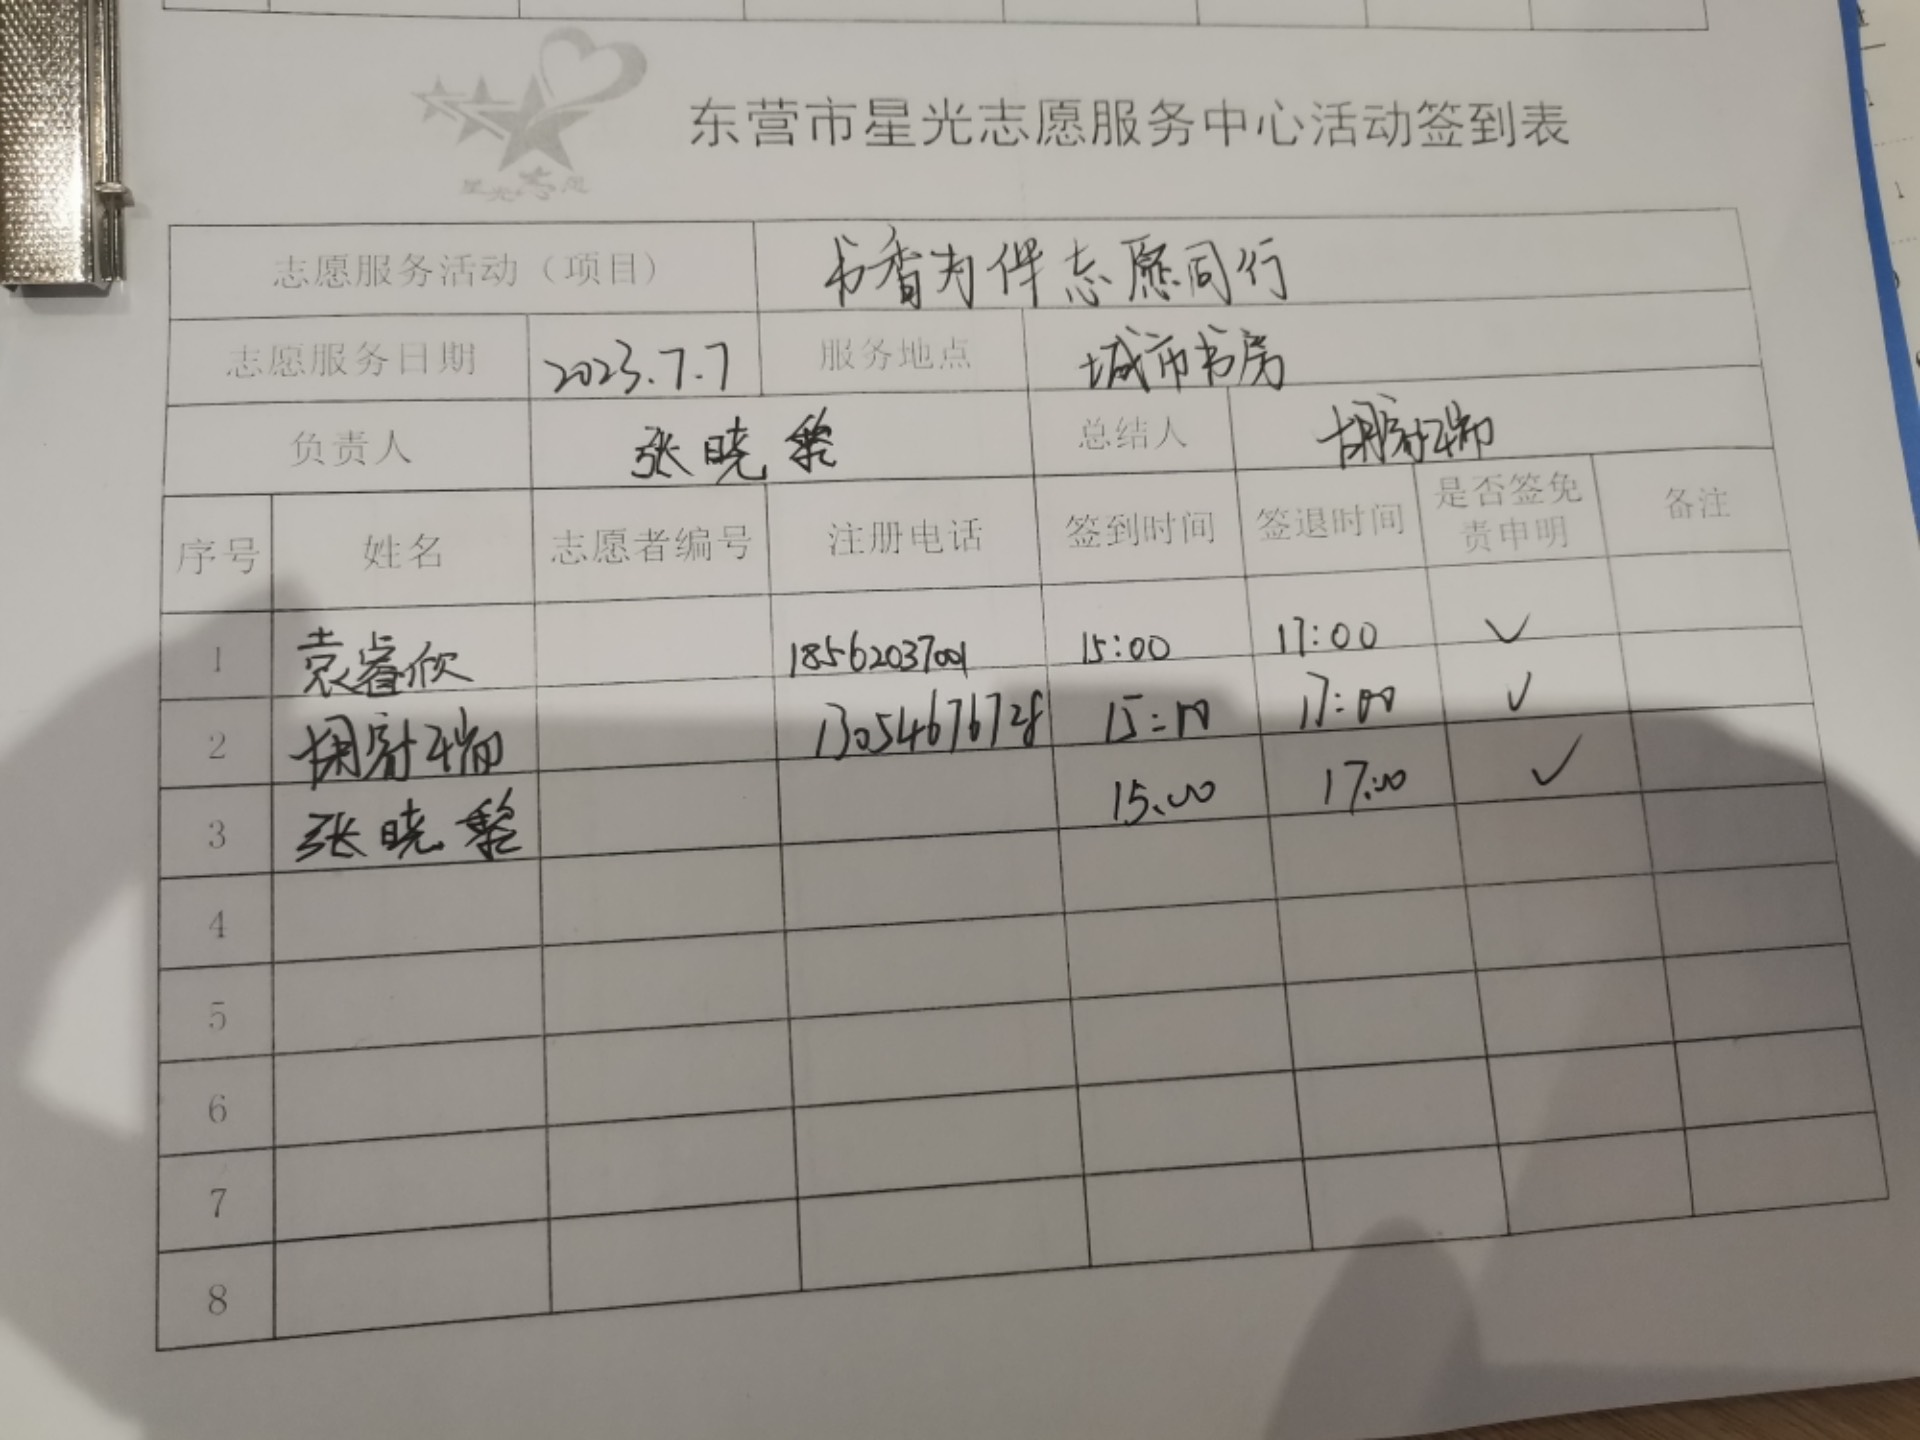 星光志愿
东营市星光志愿服务中心活动签到表
志愿服务活动（项目） 书香为伴志愿同行
志愿服务日期 2023.7.7 服务地点 城市书房
负责人 张晓黎 总结人 胡蔚瑞
序号 姓名 志愿者编号 注册电话 签到时间 签退时间 是否签免责申明 备注
1 袁睿欣 18562037001 15:00 17:00 ✓
2 胡蔚瑞 13054676728 15:00 17:00 ✓
3 张晓黎 15:00 17:00 ✓
4
5
6
7
8